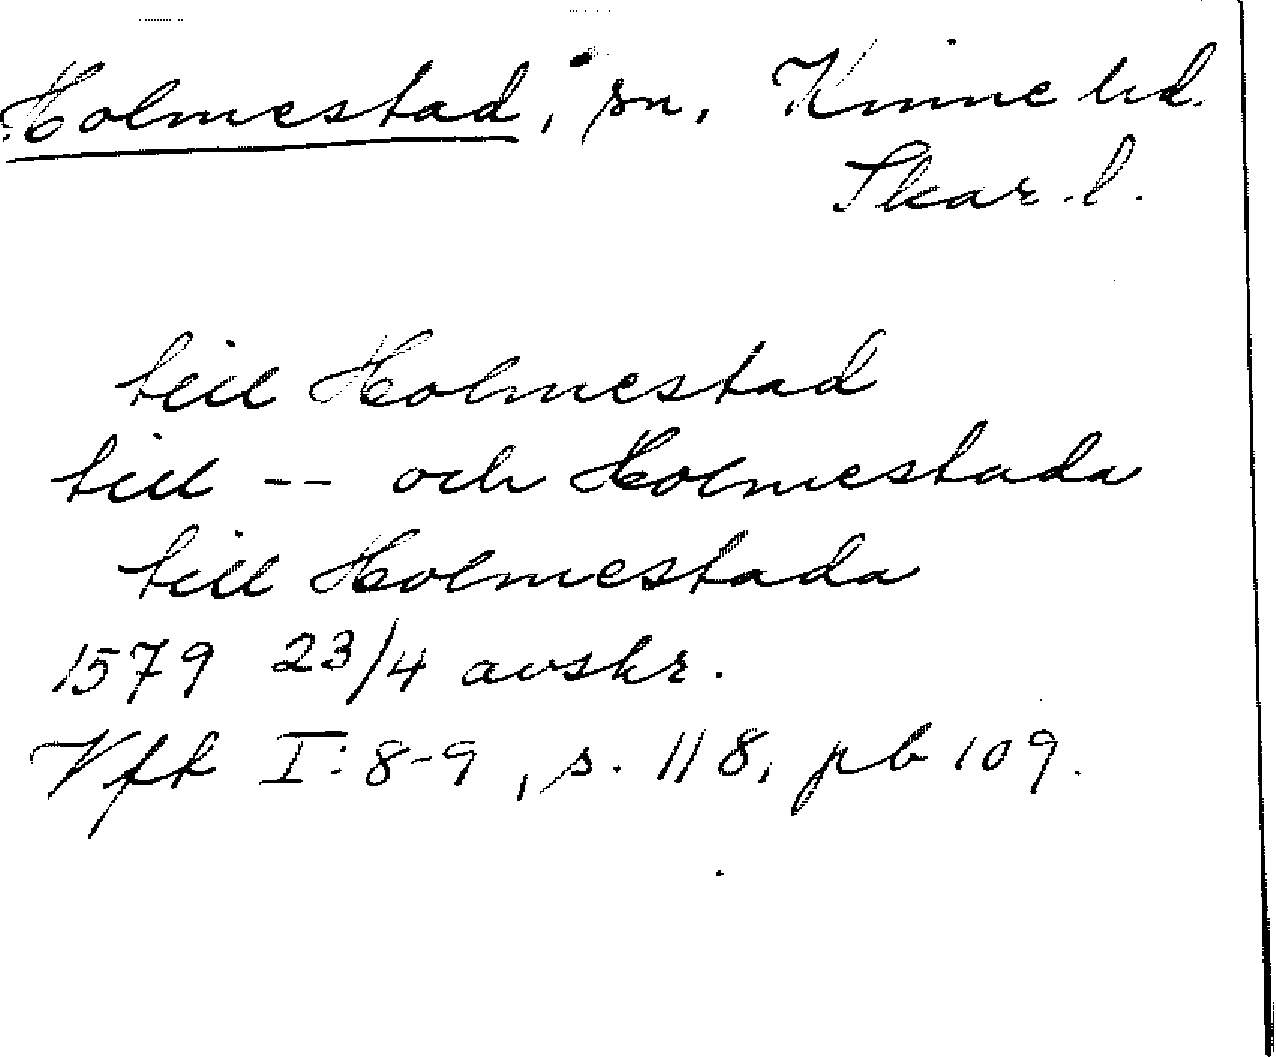 Holmestad, sn, Kinne hd.
Skar. l.
till Holmestad
till -- och Holmestada
till Holmestada
1579 23/4 avskr.
Vfk I:8-9, s. 118, pb 109.